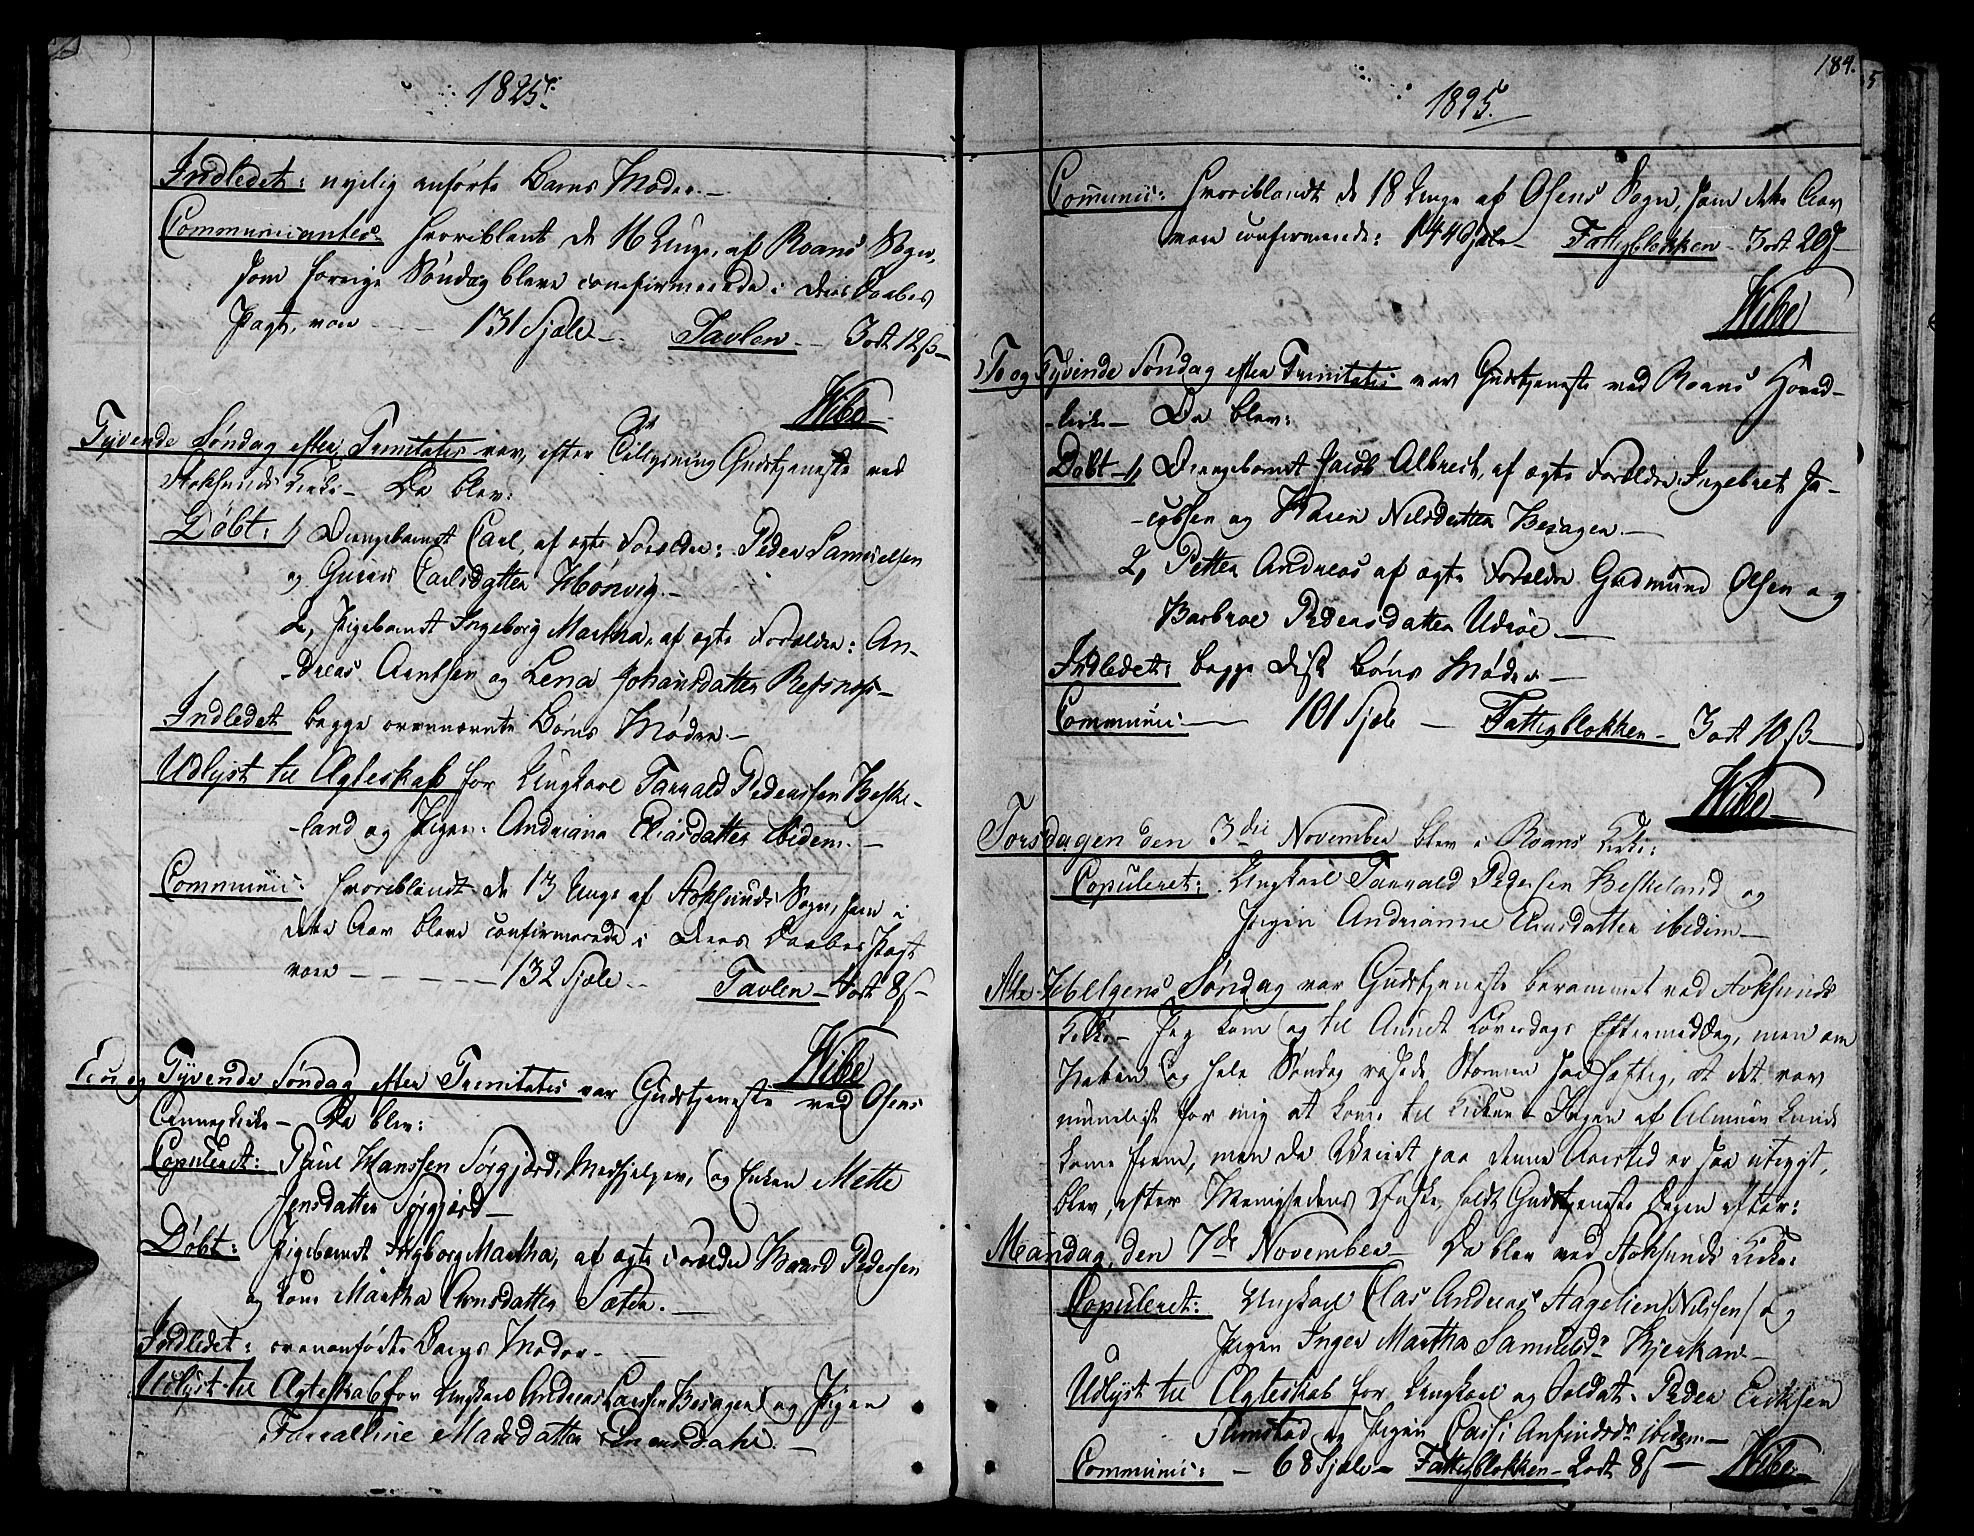 1825.
Indledet: nÿelig anførte Barns Moder.—
Communicantes: hvoriblant de 16 Unge, af Roans Sogn,
som forrige Søndag bleve confirmerede i deres Daabes
Pagt, vare - - - 131 Sjæle — Tavlen — 3 ort 12 ß—
Wibe
Tyvende Søndag efter Trinitatis var, efter Tillysning Gudstjeneste ved
Stoksunds Kirke — Da blev:
Døbt: 1, Drengebarnet Carl, af ægte Forældre: Peder Samuelsen
og Carlsdatter Hønvig.—
2, Pigebarnet Ingeborg Martha, af ægte Forældre: An-
-dreas Arntsen og Lena Johansdatter Refsnæs—
Indledet begge ovennævnte Børns Mødre.—
Udlyst til Ægteskab for Ungkarl Tarrald Pedersen Beske-
-land og Pigen: Andriana Eliasdatter ibidem.—
Communic: hvoriblandt de 13 Unge af Stoksunds Sogn, som i
dette Aar bleve confirmerede i Deres Daabes Pagt
vare - - - - - 132 Sjæle — Tavlen — ort 8 ß—
Wibe
Een og Tyvende Søndag efter Trinitatis var Gudstjeneste ved Osens
Annexkirke — Da blev:
Copuleret: Paul Hanssen Sørgjerd, Medhjelper, og Enken Mette
Jensdatter Sørgjerd—
Døbt: Pigebarnet Ingborg Martha, af ægte Forældre Baard Pedersen
og Kone Martha Arnsdatter Sæter.—
Indledet: ovenanførte Barns Moder.—
Udlyst til Ægteskab for Ungkarl Andreas Larsen Besagen og Pigen
Madsdatter
184.
1825.
Communic: hvoriblandt de 18 Unge af Osens Sogn, som dette Aar
vare confirmerede: 144 Sjæle — Fattigblokken — 3 ort 20 ß—
Wibe
To og Tyvende Søndag efter Trinitatis var Gudstjeneste ved Roans Hoved-
-kirke — Da blev:
Døbt — 1, Drengebarnet Jacob Albrect, af ægte Forældre: Ingebret Ja-
-cobsen og Karen Nilsdatter Besagen.—
2, Petter Andreas af ægte Forældre Gudmund Olsen og
Barbroe Pedersdatter Udrøe.—
Indledet: begge disse Børns Mødre—
Communic: — 101 Sjæle — Fattigblokken — 3 ort 10 ß—
Wibe
Torsdagen den 3die November blev i Roans Kirke:
Copuleret: Ungkarl Tarrald Pedersen Beskeland og
Pigen Andrianne Eliasdatter ibidem—
Alle Helgens Søndag var Gudstjeneste berammet ved Stoksunds
Kirke — Jeg kom og til Løverdags Eftermiddag, men om
Natten og hele Søndag rasede Stormen saa hæftig, at det var
mueligt for mig at komme til Kirken — Ingen af Almuen kunde
komme frem, men da Veiret paa denne Aarstid er saa utrygt,
blev, efter Menighedens Ønske, holdt Gudstjeneste Dagen efter:
Mandag, den 7de November — Da blev ved Stoksunds Kirke:
Copuleret: Ungkarl Clas Andreas (Nilssen) og
Pigen Inger Martha Samuelsdr Bjerkan—
Udlyst til Ægteskab for Ungkarl og Soldat Peder Eriksen
og Pigen Anfindsdr ibidem—
Communic: — 68 Sjæle — Fattigblokken — 2 ort 8 ß— Wibe